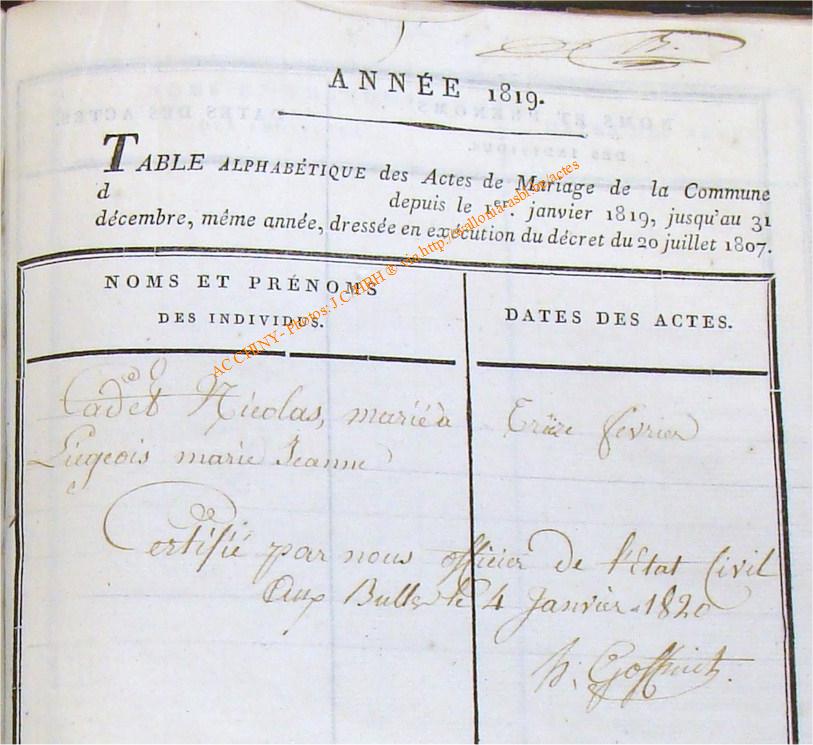 ANNÉE 1819.
TABLE ALPHABÉTIQUE des Actes de Mariage de la Commune
d depuis le 1er. janvier 1819, jusqu'au 31
décembre, même année, dressée en exécution du décret du 20 juillet 1807.
NOMS ET PRÉNOMS
DES INDIVIDUS.
DATES DES ACTES.
Cadet Nicolas, marié à
Liégeois marie Jeanne
Treize fevrier
Certifié par nous officier de l'État Civil
Aux Bulles le 4 Janvier 1820
h. Goffinet.
AC CHINY - Photos: J.C HRH ® via http://wallonia-asbl.be/actes